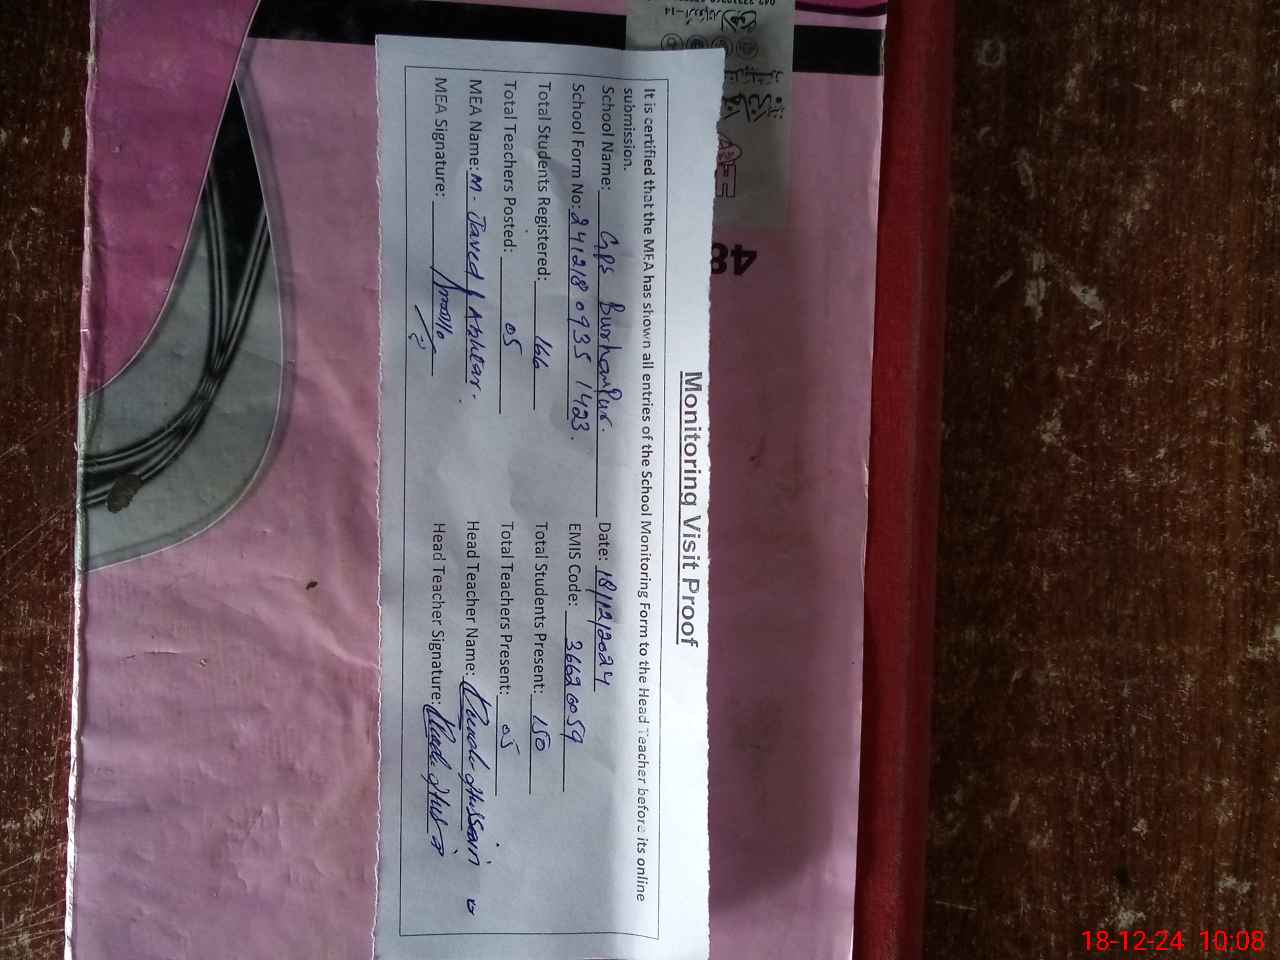 Monitoring Visit Proof
It is certified that the MEA has shown all entries of the School Monitoring Form to the Head Teacher before its online
submission.
School Name: GPS Burhanpur. Date: 18/12/2024
School Form No: 241218 0935 1423. EMIS Code: 36620059
Total Students Registered: 166 Total Students Present: 150
Total Teachers Posted: 05 Total Teachers Present: 05
MEA Name: M. Javed Head Teacher Name: Hussain
MEA Signature: Head Teacher Signature:
48
18-12-24 10:08